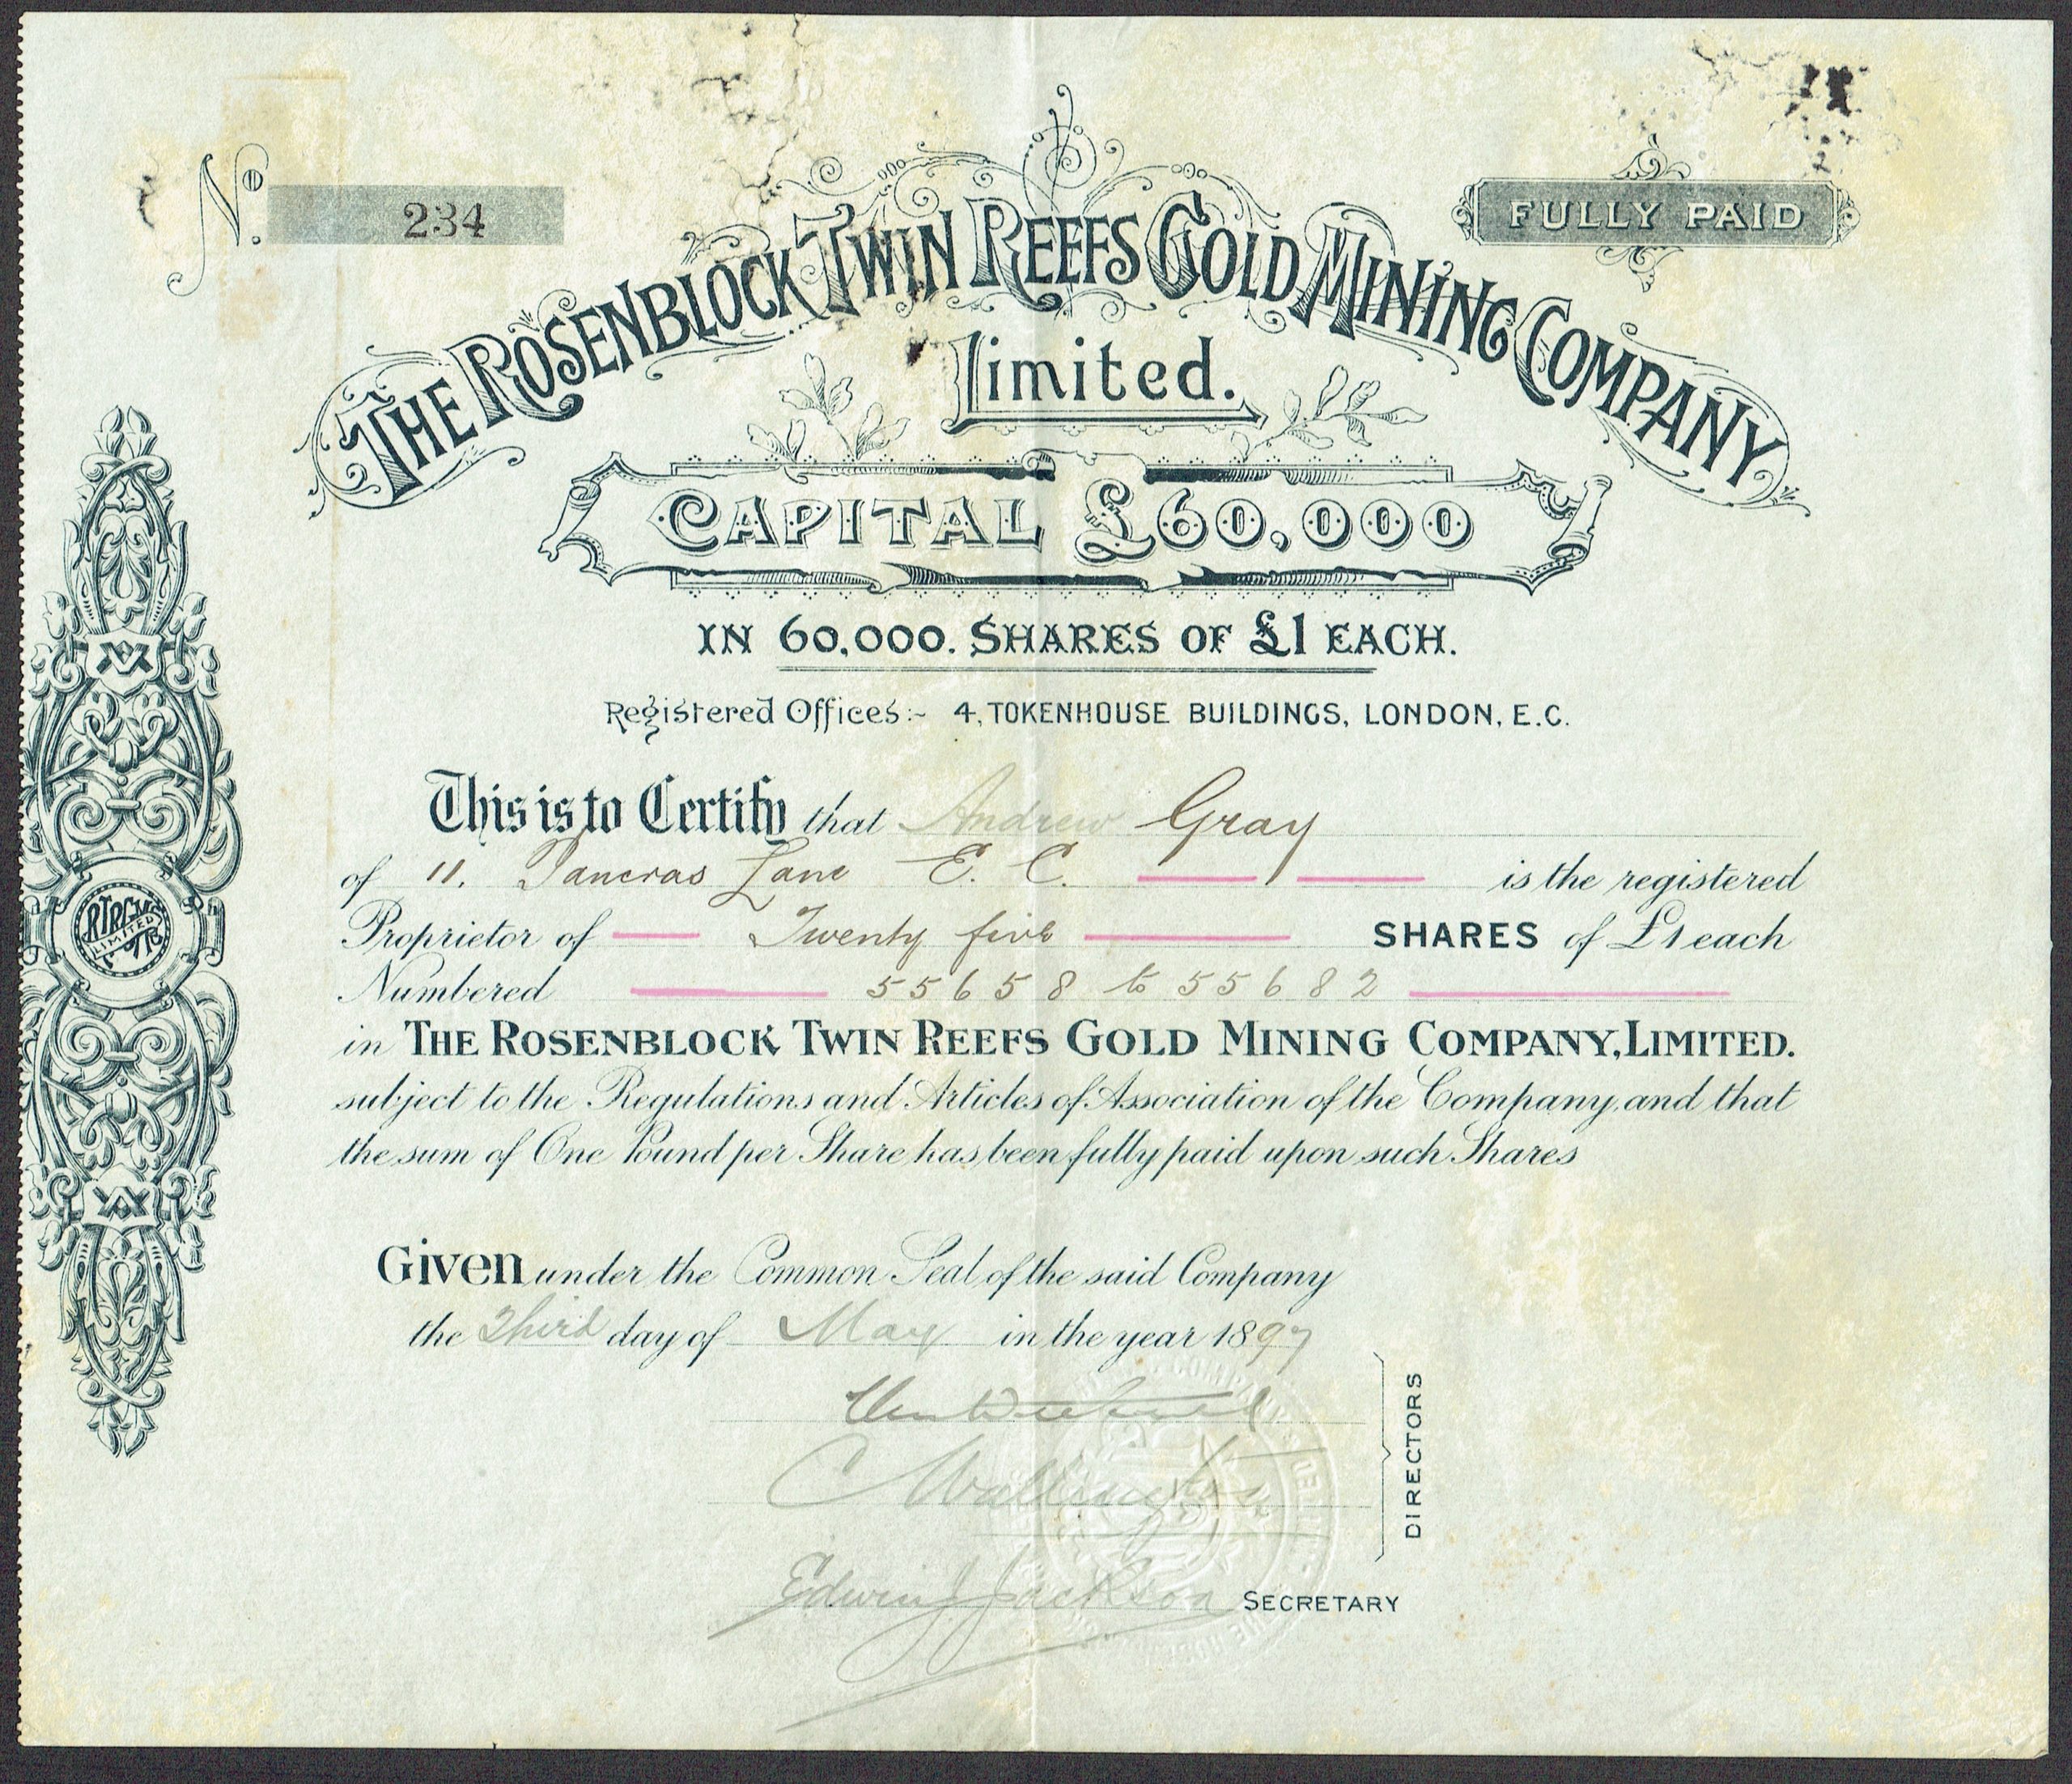 No. 234
FULLY PAID
THE ROSENBLOCK TWIN REEFS GOLD MINING COMPANY
Limited.
CAPITAL £60,000
IN 60,000. SHARES OF £1 EACH.
Registered Offices:~ 4, TOKENHOUSE BUILDINGS, LONDON, E.C.
This is to Certify that Andrew Gray
of 11. Pancras Lane E. C. is the registered
Proprietor of Twenty five SHARES of £1 each
Numbered 55658 to 55682
in THE ROSENBLOCK TWIN REEFS GOLD MINING COMPANY, LIMITED.
subject to the Regulations and Articles of Association of the Company, and that
the sum of One Pound per Share has been fully paid upon such Shares
Given under the Common Seal of the said Company
the Third day of May in the year 1897
DIRECTORS
Edwin J Jackson SECRETARY
LIMITED